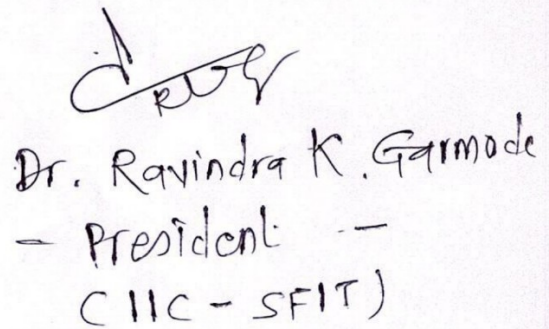 Dr. Ravindra K. Garmode
- President -
(IIC - SFIT)